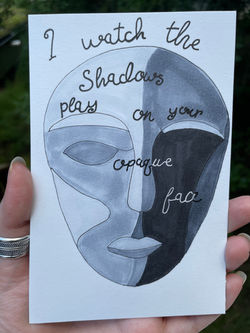 I watch the
Shadows
play on your
opaque
face